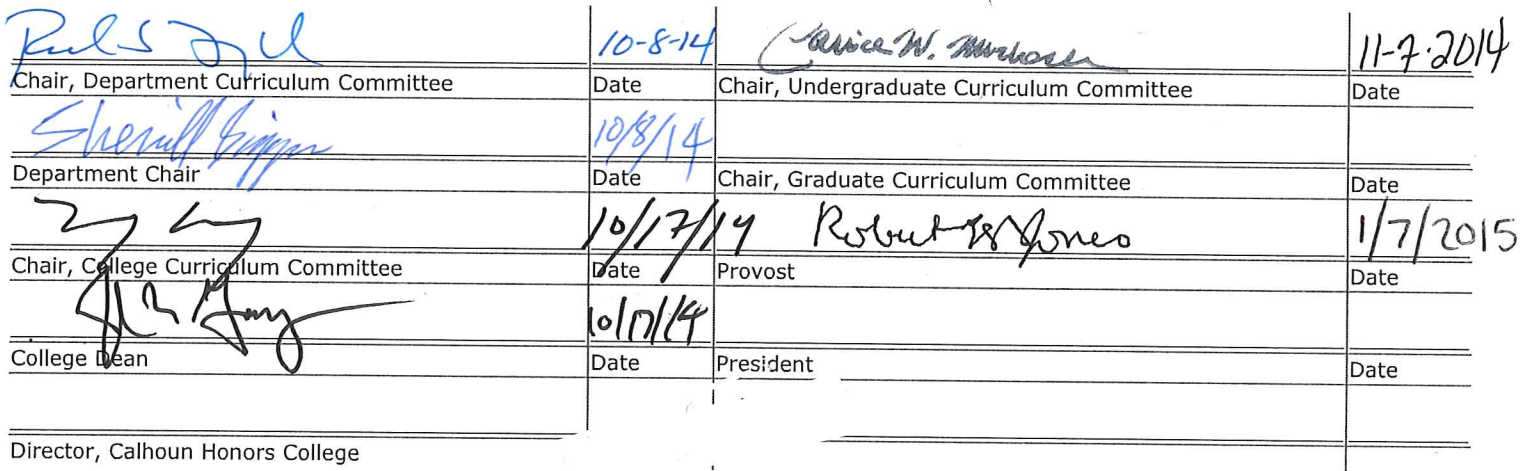 10-8-14 Janice W. 11-7-2014
Chair, Department Curriculum Committee Date Chair, Undergraduate Curriculum Committee Date
Sherrill 10/8/14
Department Chair Date Chair, Graduate Curriculum Committee Date
10/17/14 Robert Jones 1/7/2015
Chair, College Curriculum Committee Date Provost Date
10/17/14
College Dean Date President Date
Director, Calhoun Honors College